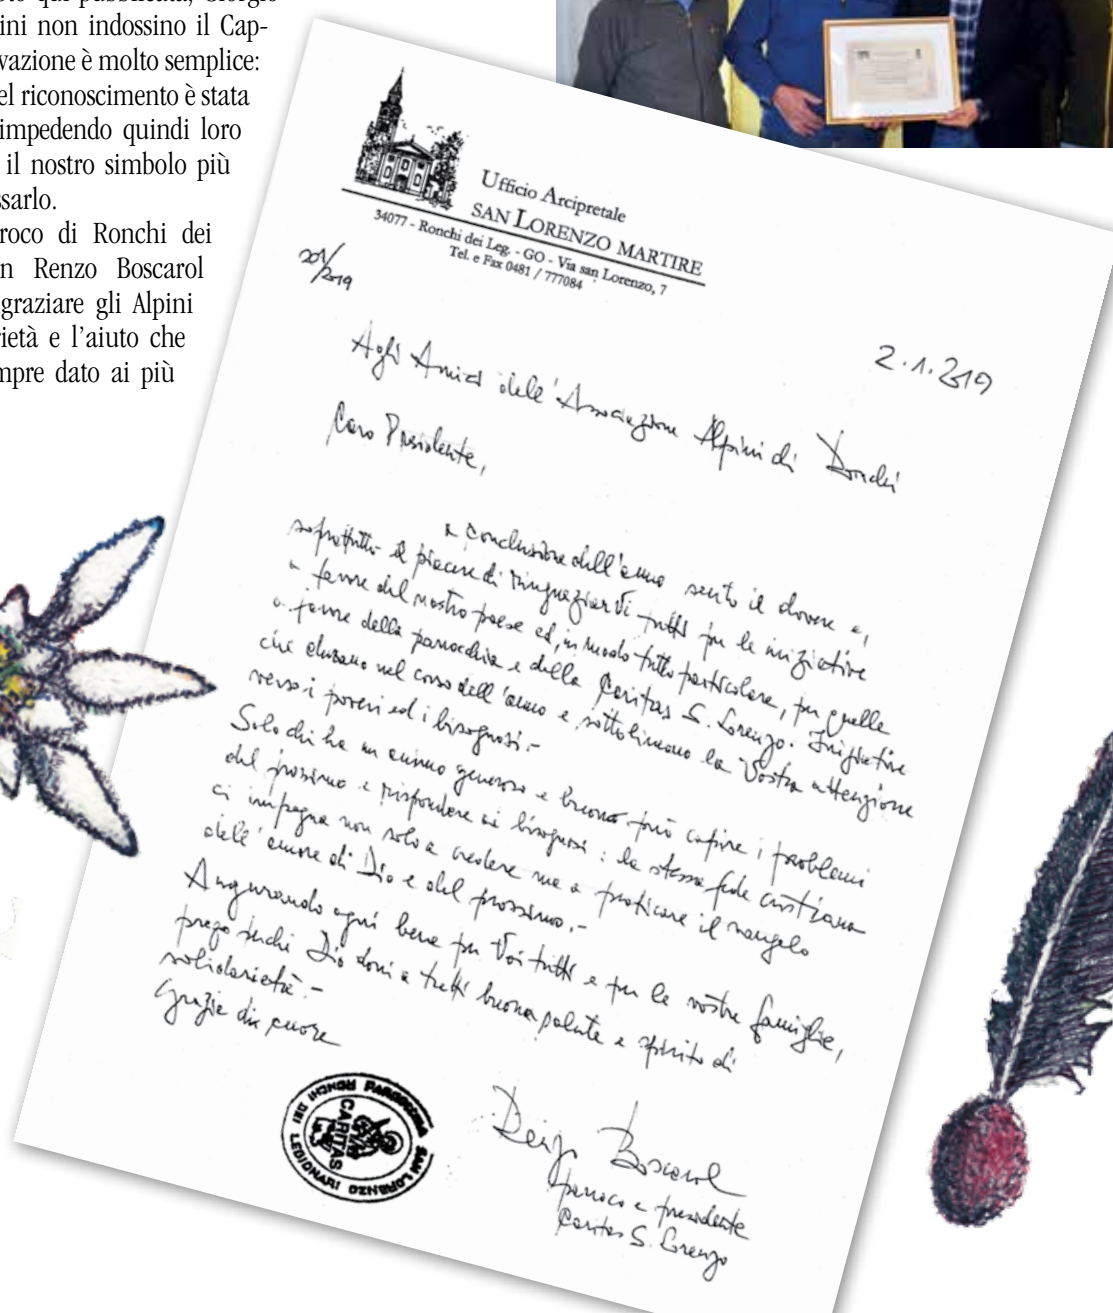 oto qui pubblicata, Giorgio
ini non indossino il Cap-
vazione è molto semplice:
el riconoscimento è stata
impedendo quindi loro
il nostro simbolo più
ssarlo.
roco di Ronchi dei
n Renzo Boscarol
graziare gli Alpini
rietà e l'aiuto che
mpre dato ai più
Ufficio Arcipretale
SAN LORENZO MARTIRE
34077 - Ronchi dei Leg. - GO - Via san Lorenzo, 7
Tel. e Fax 0481 / 777084
201/2019
2.1.2019
Agli Amici dell'Associazione Alpini di Ronchi
Caro Presidente,
a conclusione dell'anno sento il dovere e,
soprattutto il piacere di ringraziarVi tutti per le iniziative
a favore del nostro paese ed, in modo tutto particolare, per quelle
a favore della parrocchia e della Caritas S. Lorenzo. Iniziative
che durano nel corso dell'anno e sottolineano la Vostra attenzione
verso i poveri ed i bisognosi.-
Solo chi ha un animo generoso e buono può capire i problemi
del prossimo e rispondere ai bisogni: la stessa fede cristiana
ci impegna non solo a credere ma a praticare il vangelo
dell'amore di Dio e del prossimo.-
Augurando ogni bene per Voi tutti e per le vostre famiglie,
prego perché Dio doni a tutti buona salute e spirito di
solidarietà.-
Grazie di cuore
PARROCCHIA SAN LORENZO
RONCHI DEI LEGIONARI
CARITAS
Renzo Boscarol
parroco e presidente
Caritas S. Lorenzo